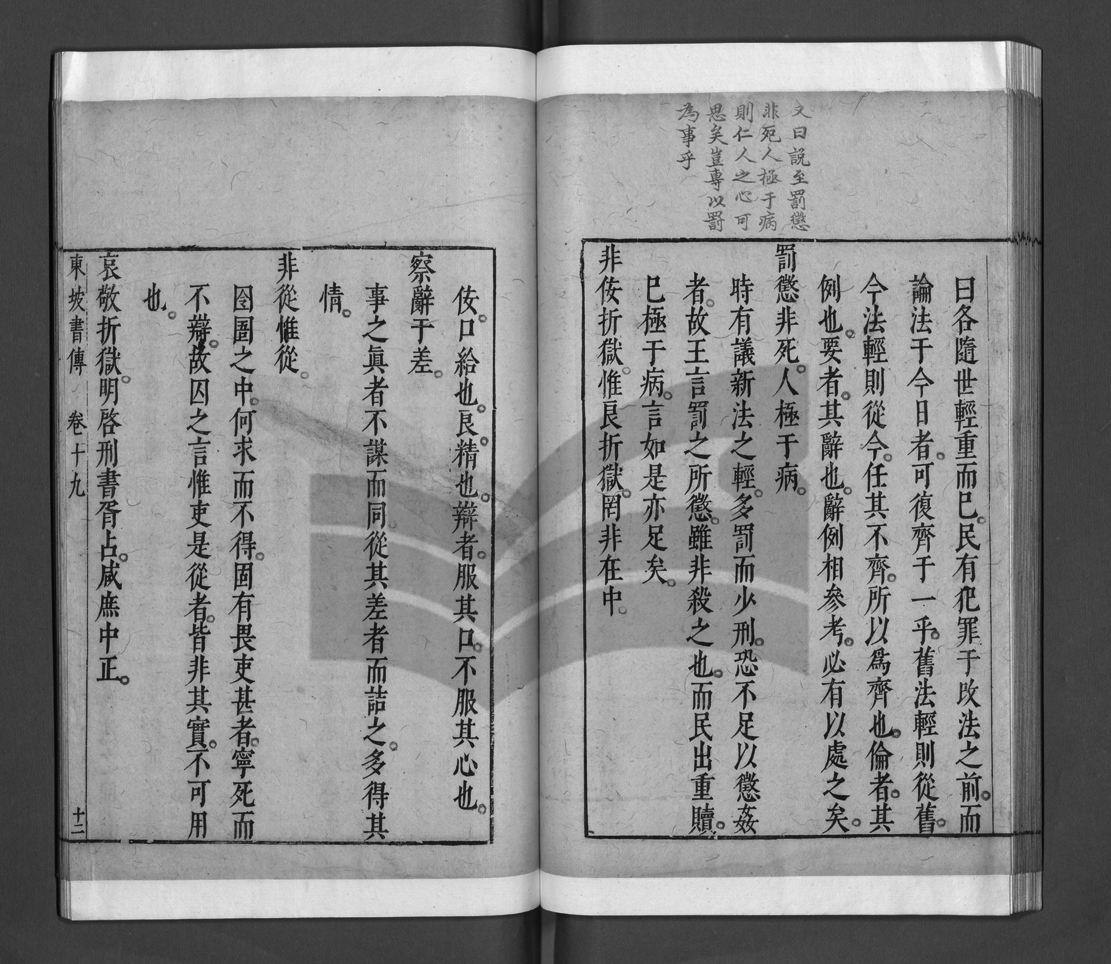 文曰説至罰懲
非死人極于病
則仁人之心可
思矣豈專以罰
為事乎
曰各隨世輕重而已。民有犯罪于改法之前。而
論法于今日者。可復齊于一乎。舊法輕則從舊。
今法輕則從今。任其不齊。所以爲齊也。倫者。其
例也。要者。其辭也。辭例相參考。必有以處之矣。
罰懲非死。人極于病。
時有議新法之輕。多罰而少刑。恐不足以懲姦
者。故王言罰之所懲。雖非殺之也。而民出重贖。
已極于病。言如是亦足矣。
非佞折獄。惟良折獄。罔非在中。
佞。口給也。良。精也。辯者。服其口。不服其心也。
察辭于差。
事之眞者不謀而同。從其差者而詰之。多得其
情。
非從惟從。
囹圄之中。何求而不得。固有畏吏甚者。寧死而
不辯。故囚之言惟吏是從者。皆非其實。不可用
也。
哀敬折獄。明啓刑書胥占。咸庶中正。
東坡書傳 卷十九 十二